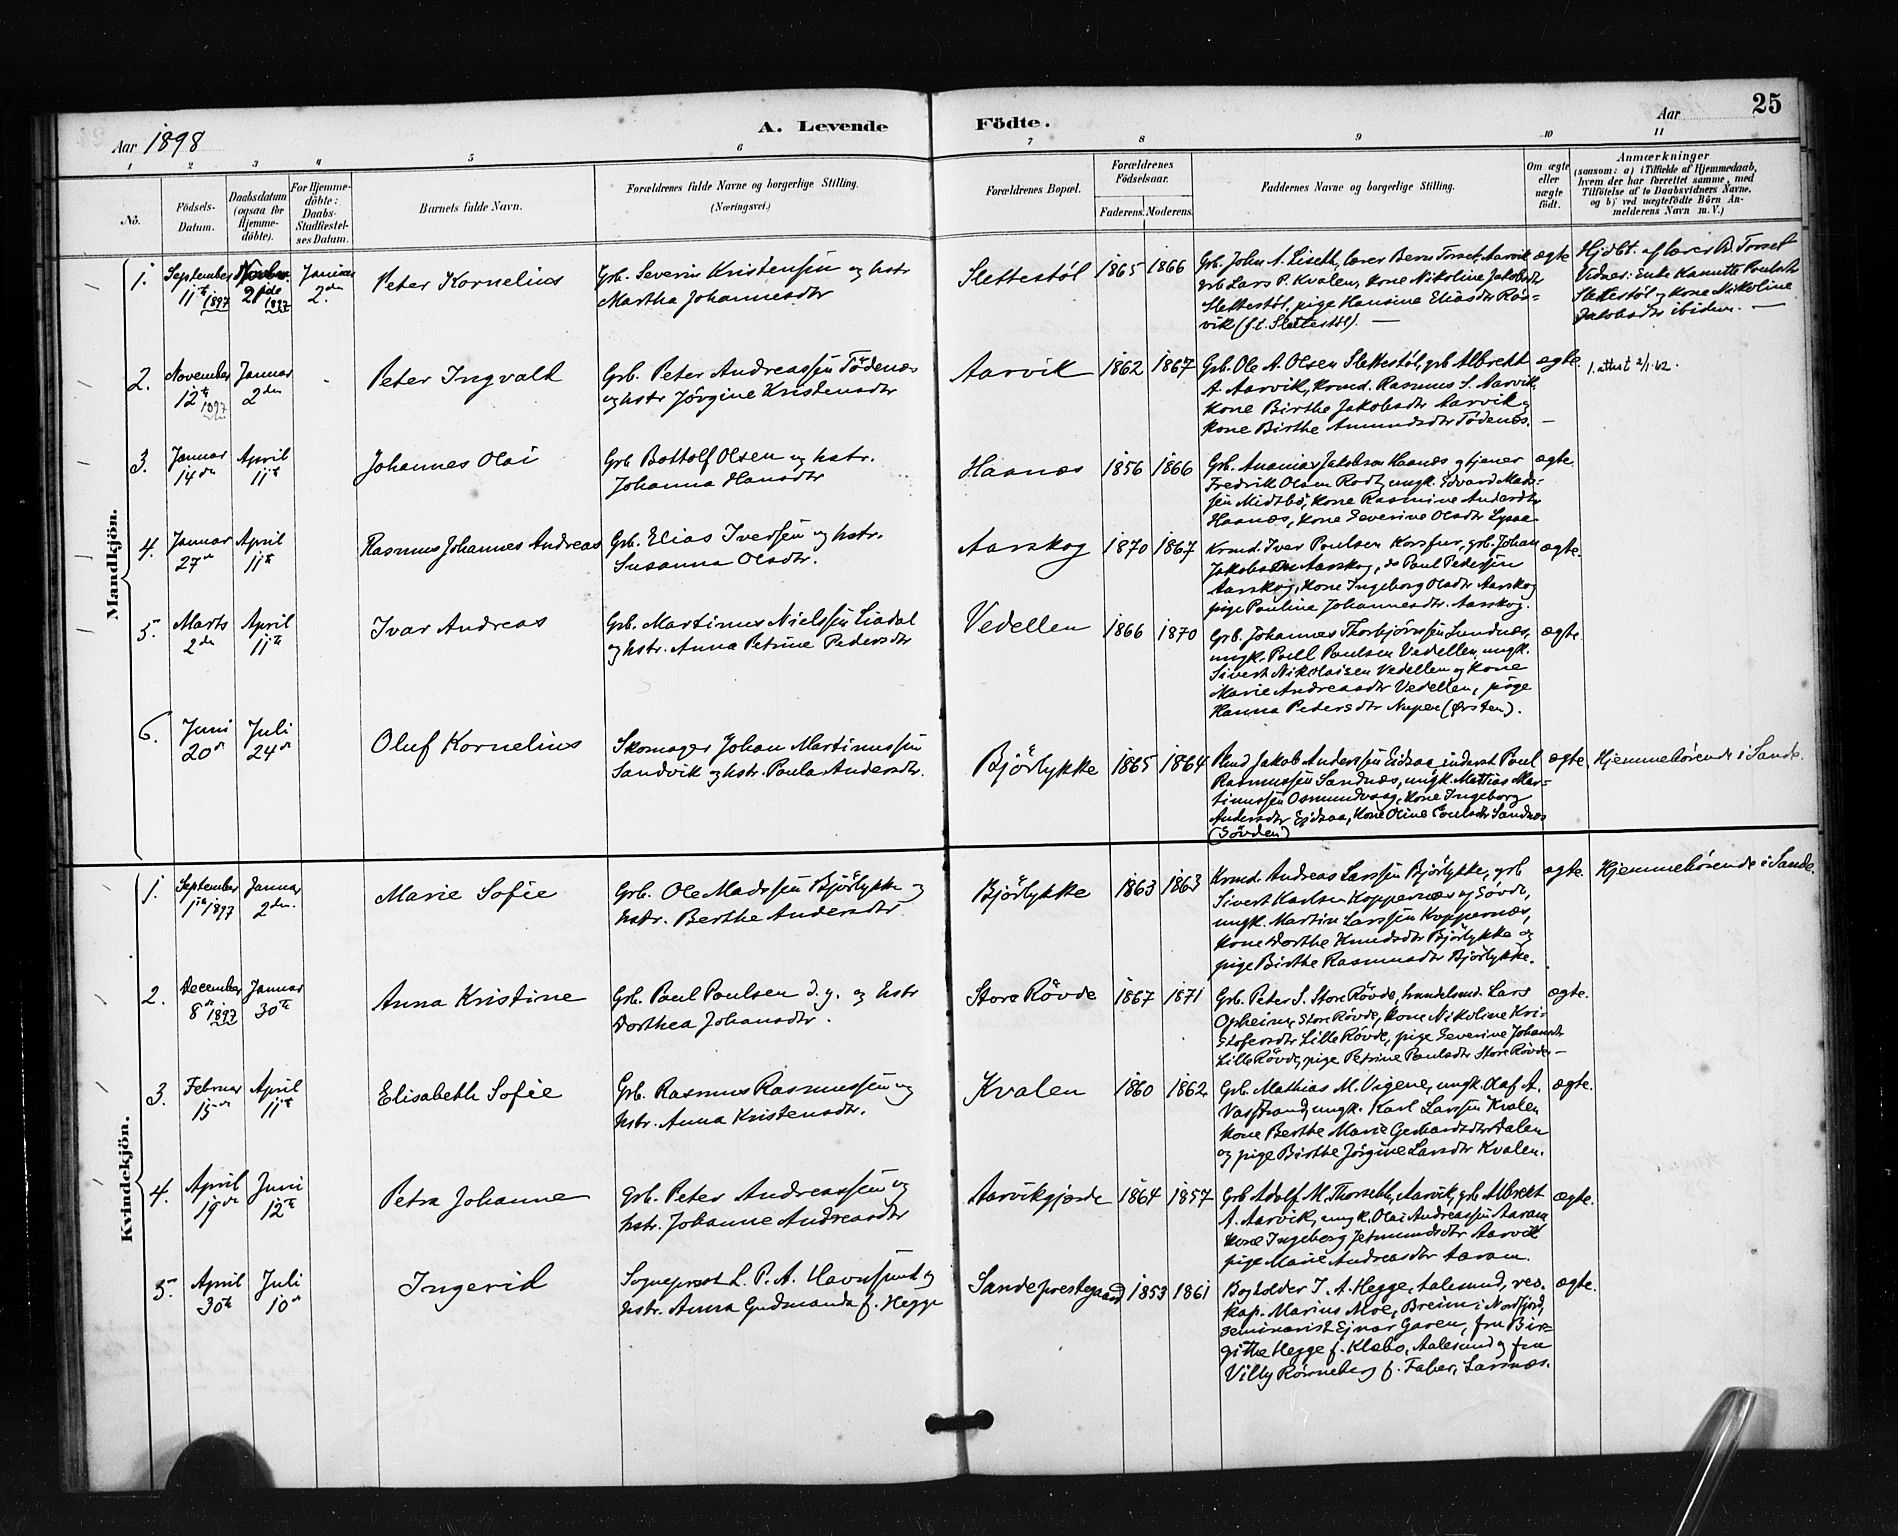 Aar 1898
A. Levende Födte.
Aar
25
1 2 3 4 5 6 7 8 9 10 11
No.
Födsels-Datum.
Daabsdatum (ogsaa for Hjemme-döbte).
For Hjemme-döbte: Daabs-Stadfæstel-ses Datum.
Barnets fulde Navn.
Forældrenes fulde Navne og borgerlige Stilling.
(Næringsvei.)
Forældrenes Bopæl.
Forældrenes Födselsaar.
Faderens. Moderens.
Faddernes Navne og borgerlige Stilling.
Om ægte eller uægte födt.
Anmærkninger
(saasom: a) i Tilfælde af Hjemmedaab,
hvem der har forrettet samme, med
Tilföielse af to Daabsvidners Navne.
og b) ved uægtefödte Börn An-
melderens Navn m. V.)
Mandkjön.
1. September 11te 1897 Novbr. 21de 1897 Januar 2den
Peter Kornelius
Grb. Severin Kristensen og hstr
Martha Johannesdtr
Slettestøl 1865 1866
Grb. John A. Liseth, lærer Bern Torset Aarvik
grb Lars P. Kvalen, kone Nikoline Jakobsdtr
Slettestøl, pige Hansine Eliasdtr Røs-
vik (f.t. Slettestøl). —
ægte
Hjdbt. af lærer B. Torset
Vidner: Enke Kanutte Poulsdtr
Slettestøl og kone Nikoline
Jakobsdtr ibidem. —
2. November 12te 1897 Januar 2den
Peter Ingvald
Grb. Peter Andreassen Tödenes
og hstr Jörgine Kristensdtr
Aarvik 1862 1867
Grb. Ole A. Olsen Slettestøl, grb Albrekt
A. Aarvik, krmd. Rasmus S. Aarvik,
kone Birthe Jakobsdtr Aarvik og
kone Birthe Amundsdtr Tödenes. —
ægte.
1. attest 2/1-62.
3. Januar 14de April 11te
Johannes Olai
Grb Bottolf Olsen og hstr.
Johanna Hansdtr
Haanæs 1856 1866
Grb. Ananias Jakobsen Haanæs og tjener
Fredrik Olsen Rodt, ungk. Edvard Mads-
sen Midtbø, kone Rasmine Andersdtr
Haanæs, kone Severine Olsdtr
ægte.
4. Januar 27de April 11te
Rasmus Johannes Andreas
Grb. Elias Iversen og hstr.
Susanna Olsdtr.
Aarskog 1870 1867
Krmd. Iver Poulsen Korsfur, grb. Johan
Jakobsen Aarskog, do Paul Pedersen
Aarskog, kone Ingeborg Olsdtr Aarskog
pige Pauline Johannesdtr. Aarskog.
ægte.
5. Marts 2den April 11te
Ivar Andreas
Grb. Martinus Nielssen Liadal
og hstr. Anna Petrine Pedersdtr
Vedellen 1866 1870
Grb. Johannes Thorbjørnsen Lundnæs,
ungk. Poul Poulsen Vedellen, ungk.
Sivert Nikolaisen Vedellen og kone
Marie Andreasdtr Vedellen, pige
Hanna Pedersdtr Nupen (Ørsten).
ægte.
6. Juni 20de Juli 24de
Oluf Kornelius
Skomager Johan Martinussen
Sandvik og hstr. Paula Andersdtr.
Björlykke 1865 1864
Jakob Anderssen Eidsaa, inderst Poul
Rasmussen Sandnæs, ungk. Mattias Mar-
tinussen Osmundvaag, kone Ingeborg
Andersdtr Eidsaa, kone Oline Poulsdtr Sandnæs
(Søvden)
ægte.
Hjemmehörende i Sande.
Kvindekjön.
1. September 1897 Januar 2den
Marie Sofie
Grb. Ole Madssen Björlykke og
hstr. Berthe Andersdtr.
Björlykke 1863 1863
Krmd. Andreas Larssen Björlykke, grb
Sivert Karlsen Koppernæs af Søvde,
ungk. Martin Larssen Koppernæs,
kone Dorthe Knudsdtr Björlykke og
pige Birthe Rasmusdtr Björlykke.
ægte.
Hjemmehörende i Sande.
2. December 8de 1897 Januar 30te
Anna Kristine
Grb. Paul Poulsen d.y. og hstr
Dorthea Johansdtr.
Store Rövde 1867 1871
Grb. Peter S. Store Rövde, handelsmd. Lars
Opheim, Store Rövde, kone Nikoline Kri-
stofersdtr Lille Rövde, pige Severine Johansdtr
Lille Rövde, pige Petrine Paulsdtr Store Rövde. —
ægte.
3. Februar 15de April 11te
Elisabeth Sofie
Grb. Rasmus Rasmussen og
hstr. Anna Kristensdtr.
Kvalen 1860 1862
Grb. Mathias M. Vigene, ungk. Olaf A.
Vasstrand, ungk. Karl Larssen Kvalen
kone Berthe Marie Gerhardsdtr Aalen
og pige Birthe Jörgine Larsdtr Kvalen.
ægte.
4. April 19de Juni 12te
Petra Johanne
Grb. Peter Andreassen og
hstr. Johanne Andreasdtr
Aarvikgjerde 1864 1857
Grb Adolf M. Thorseth, Aarvik, grb Albrekt
A. Aarvik, ungk. Olai Andreassen Aaram
kone Ingeborg Jetmundsdtr Aarvik
pige Marie Andreasdtr Aaram.
ægte.
5. April 30te Juli 10de
Ingerid
Sogneprest L. P. A. Havnsund og
hstr. Anna Gudmanda f. Hegge
Sande prestegaard 1853 1861
Bogholder I. A. Hegge, Aalesund, res.
kap. Marius Moe, Breim i Nordfjord,
seminarist Ejnar Garen, fru Bir-
githe Hegge f. Klæbo, Aalesund og fru
Villy Rønneberg f. Faber, Larsnæs.
ægte.